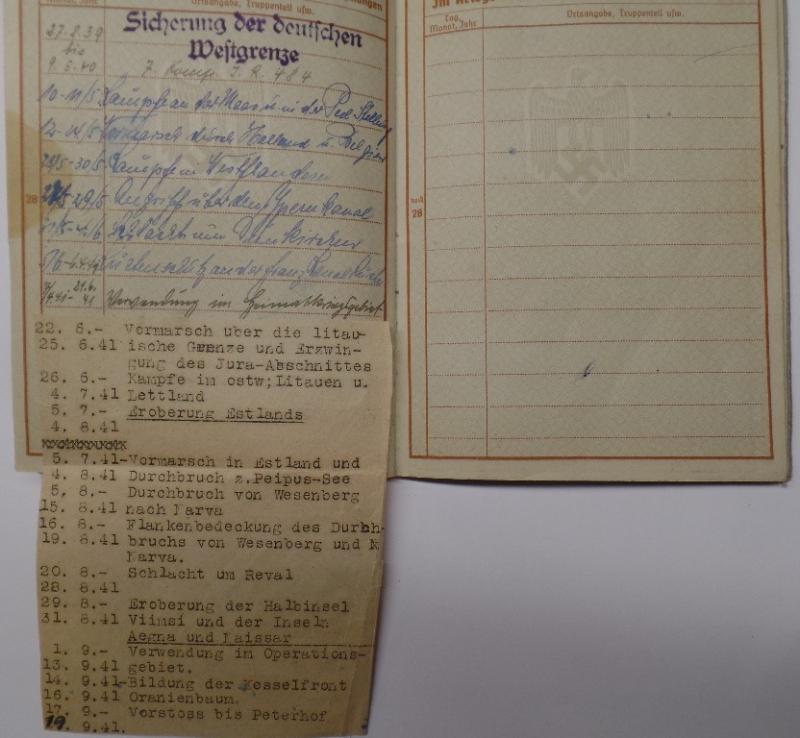 Monat, Jahr
Ortsangabe, Truppenteil usw.
27.8.39 Sicherung der deutschen
bis Westgrenze
9.5.40 7. Komp. I.R. 484
10-11/5 Kämpfe an der Maas u. in der Peel-Stellung
Vormarsch durch Holland u. Belgien
-30/5 Kämpfe in Westflandern
-29/5 Angriff über den Ypern Kanal
Schlacht um Dünkirchen
Küstenschutz an der franz. Kanalküste
Verwendung im Heimatkriegsgebiet
28
22. 6.- Vormarsch über die litau-
25. 6.41 ische Grenze und Erzwin-
gung des Jura-Abschnittes
26. 6.- Kämpfe im ostw; Litauen u.
4. 7.41 Lettland
5. 7.- Eroberung Estlands
4. 8.41
5. 7.41-Vormarsch in Estland und
4. 8.41 Durchbruch z.Peipus-See
5. 8.- Durchbruch von Wesenberg
15. 8.41 nach Narva
16. 8.- Flankenbedeckung des Durch-
19. 8.41 bruchs von Wesenberg und N
Narva.
20. 8.- Schlacht um Reval
28. 8.41
29. 8.- Eroberung der Halbinsel
31. 8.41 Viimsi und der Inseln
Aegna und Naissar
1. 9.- Verwendung im Operations-
13. 9.41 gebiet.
14. 9.41-Bildung der Kesselfront
16. 9.41 Oranienbaum.
17. 9.- Vorstoss bis Peterhof
19. 9.41.
Tag, Monat, Jahr
Ortsangabe, Truppenteil usw.
noch
28